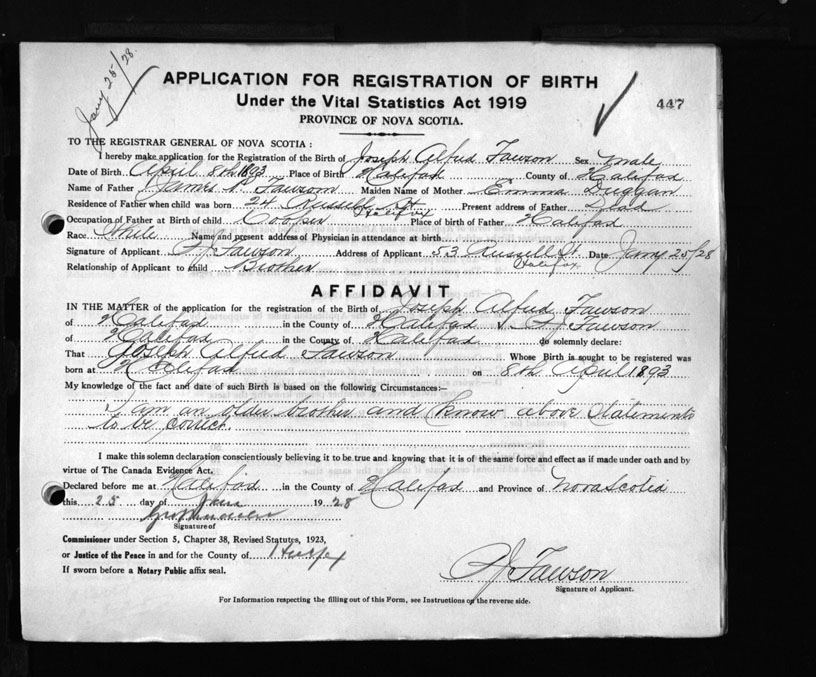 Jany 25/28.
APPLICATION FOR REGISTRATION OF BIRTH
Under the Vital Statistics Act 1919
447
PROVINCE OF NOVA SCOTIA.
TO THE REGISTRAR GENERAL OF NOVA SCOTIA :
I hereby make application for the Registration of the Birth of Joseph Alfred Fawson Sex male
Date of Birth April 8th 1893 Place of Birth Halifax County of Halifax
Name of Father James Fawson Maiden Name of Mother Emma Duggan
Residence of Father when child was born 24 Russell St Halifax Present address of Father Dead
Occupation of Father at Birth of child Cooper Place of birth of Father Halifax
Race White Name and present address of Physician in attendance at birth
Signature of Applicant Fawson Address of Applicant 53 Russell St. Halifax Date Jany 25/28
Relationship of Applicant to child Brother
AFFIDAVIT
IN THE MATTER of the application for the registration of the Birth of Joseph Alfred Fawson
of Halifax in the County of Halifax Fawson
of Halifax in the County of Halifax do solemnly declare:
That Joseph Alfred Fawson Whose Birth is sought to be registered was
born at Halifax on 8th April 1893
My knowledge of the fact and date of such Birth is based on the following Circumstances:—
I am an older brother and know above statements
to be correct.
I make this solemn declaration conscientiously believing it to be true and knowing that it is of the same force and effect as if made under oath and by
virtue of The Canada Evidence Act.
Declared before me at Halifax in the County of Halifax and Province of Nova Scotia
this 25 day of Jany 1928
Signature of
Commissioner under Section 5, Chapter 38, Revised Statutes, 1923,
or Justice of the Peace in and for the County of Halifax
If sworn before a Notary Public affix seal.
Fawson
Signature of Applicant.
For Information respecting the filling out of this Form, see Instructions on the reverse side.